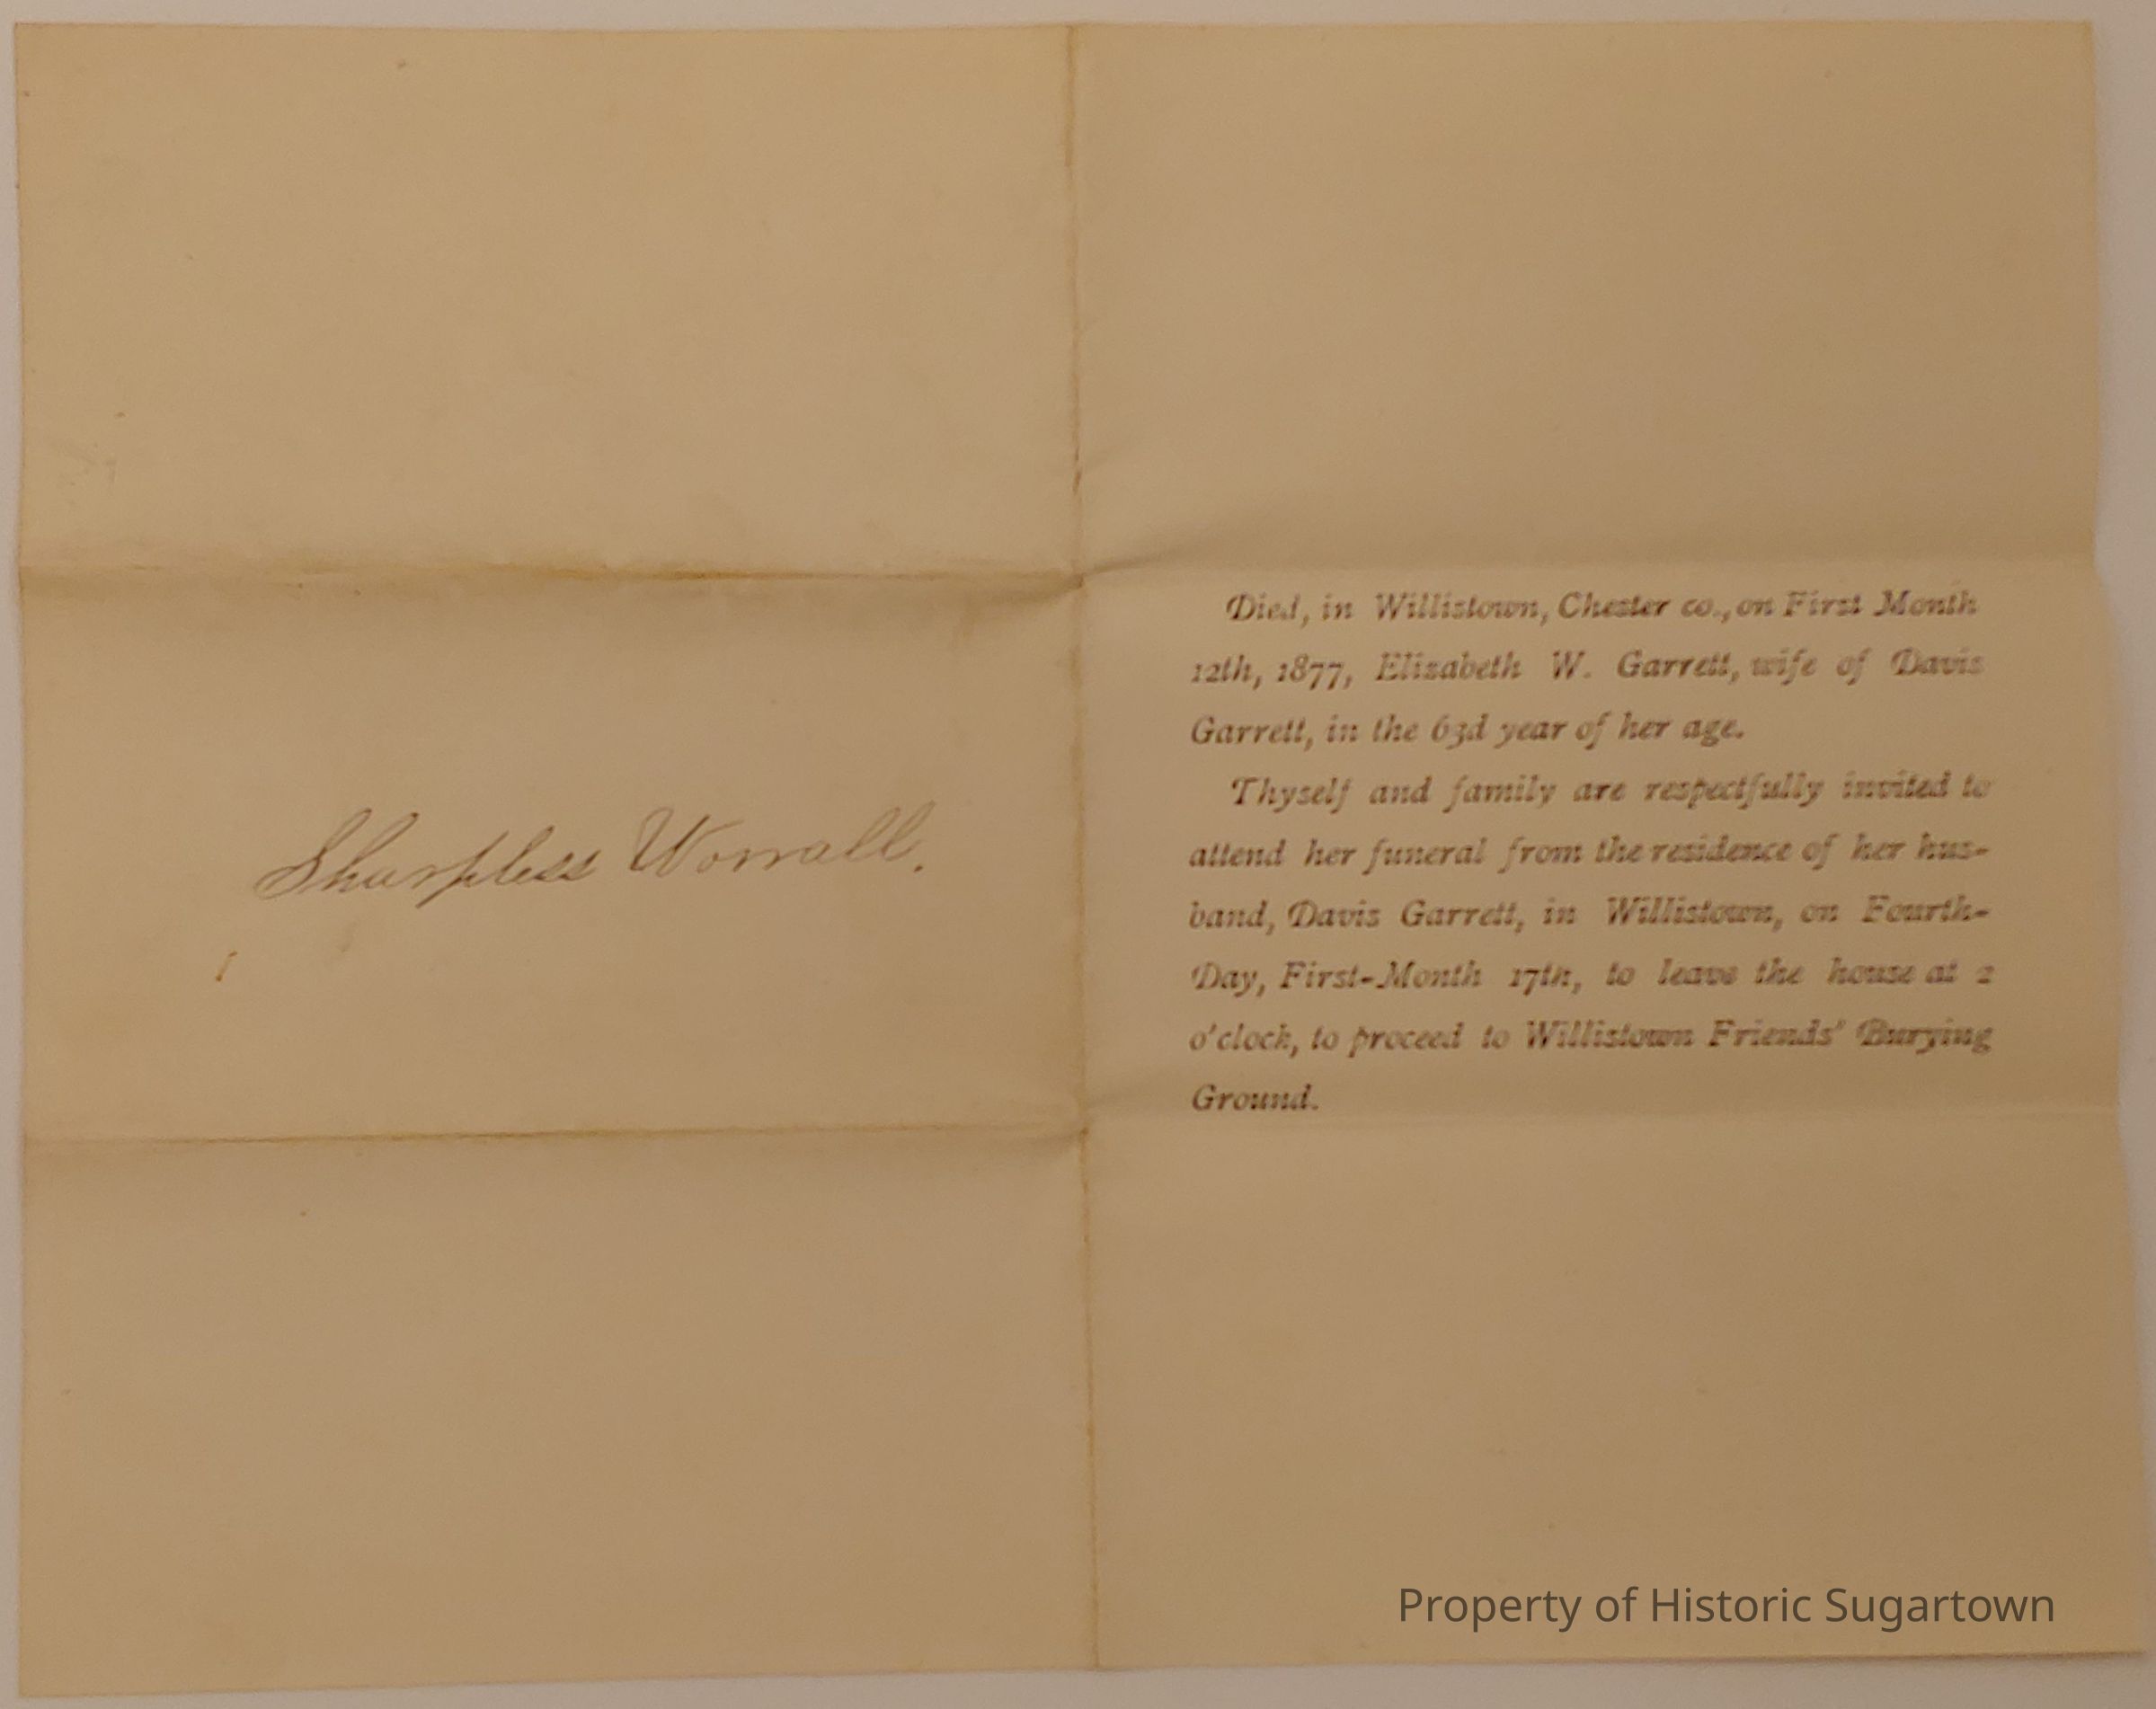 Sharpless Worrall.
Died, in Willistown, Chester co., on First Month
12th, 1877, Elizabeth W. Garrett, wife of Davis
Garrett, in the 63d year of her age.
Thyself and family are respectfully invited to
attend her funeral from the residence of her hus-
band, Davis Garrett, in Willistown, on Fourth-
Day, First-Month 17th, to leave the house at 2
o'clock, to proceed to Willistown Friends' Burying
Ground.
Property of Historic Sugartown